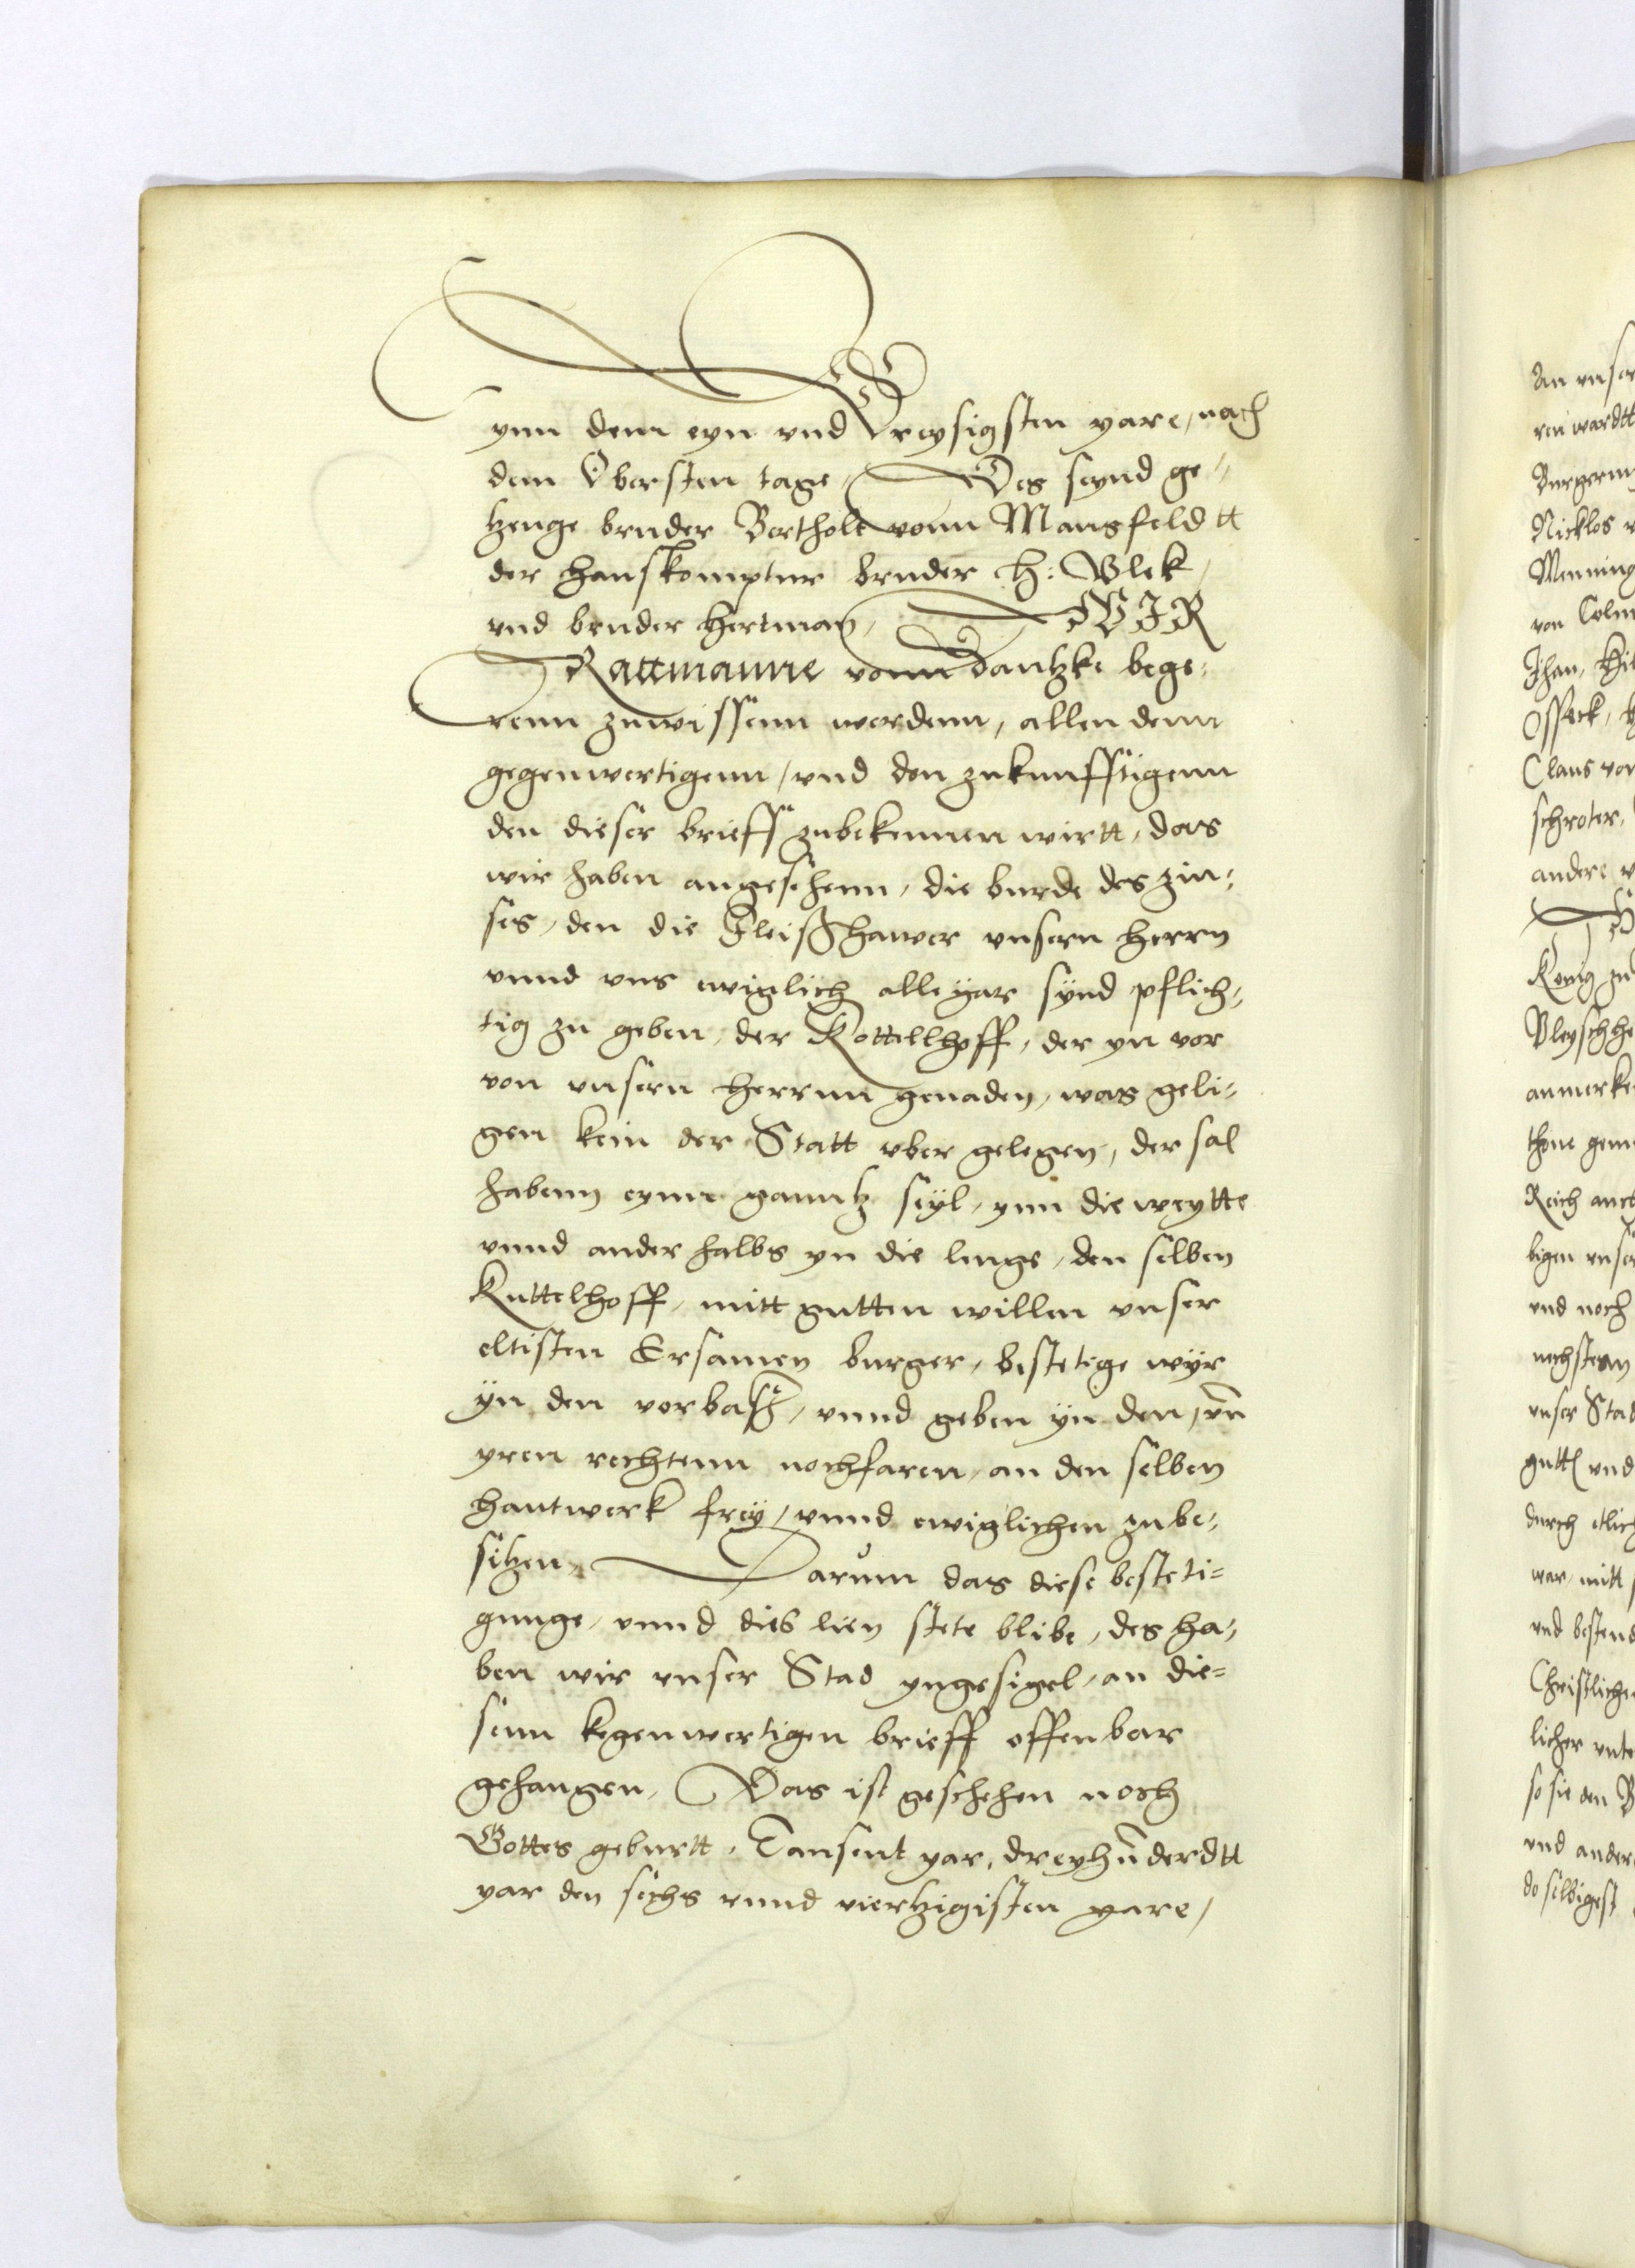 ynn dem eyn und Dreysigsten yare, nach
dem Obersten tage, Des seynd ge-
tzenge bruder Bertholt vonn Mansfeldtt
der hauskomptur bruder H: Blek,
und bruder Hertman, WIR
Rattmanne vonn Dantzke bege-
renn zuwissenn werdenn, allen denn
gegenwertigenn, und den zukunfftigenn
den dieser brieff zubekennen wirtt, das
wir haben angesehenn, die burde des zin-
ses, den die Fleischhawer unsern herrn
unnd uns ewiglich alle yar synd pflich-
tig zu geben, der Kottellhoff, der yn vor
von unsern herrnn genaden, was geli-
gen kein der Statt uber gelegen, der sal
habenn eynn ganntz seyl, ynn die weytte
unnd ander halbs yn die lenge, den selben
Kuttelhoff, mitt gutten willen unser
eltisten Ersamen burger, bistetige wyr
yn den vorbas, unnd geben yn den, un̄
yren rechtenn nochfaren, an den selben
hantwerk frey, unnd ewiglichen zube-
sitzen, Darum das diese besteti-
gunge, unnd dis lien stete blibe, des ha-
ben wir unser Stad yngesigel, an die-
senn kegenwertigen brieff offenbar
gehangen, Das ist geschehen noch
Gottes geburtt, Tausent yar, dreyhūderdtt
yar den sechs unnd viertzigisten yare,
An unser
ren wardtt
Burgerm
Nicklos v
Menning
von Colm
Jhan, Hil
Osseck, H
Claus von
schroter,
andere v
Konig zu
Vleyschhe
anmerke
thone gem
Reich auch
bigen unser
und noch
nechsten
unser Stad
gutt und
durch etlich
war, mitt
und bestend
Christliche
licher unte
so sie den B
und ander
do selbigest